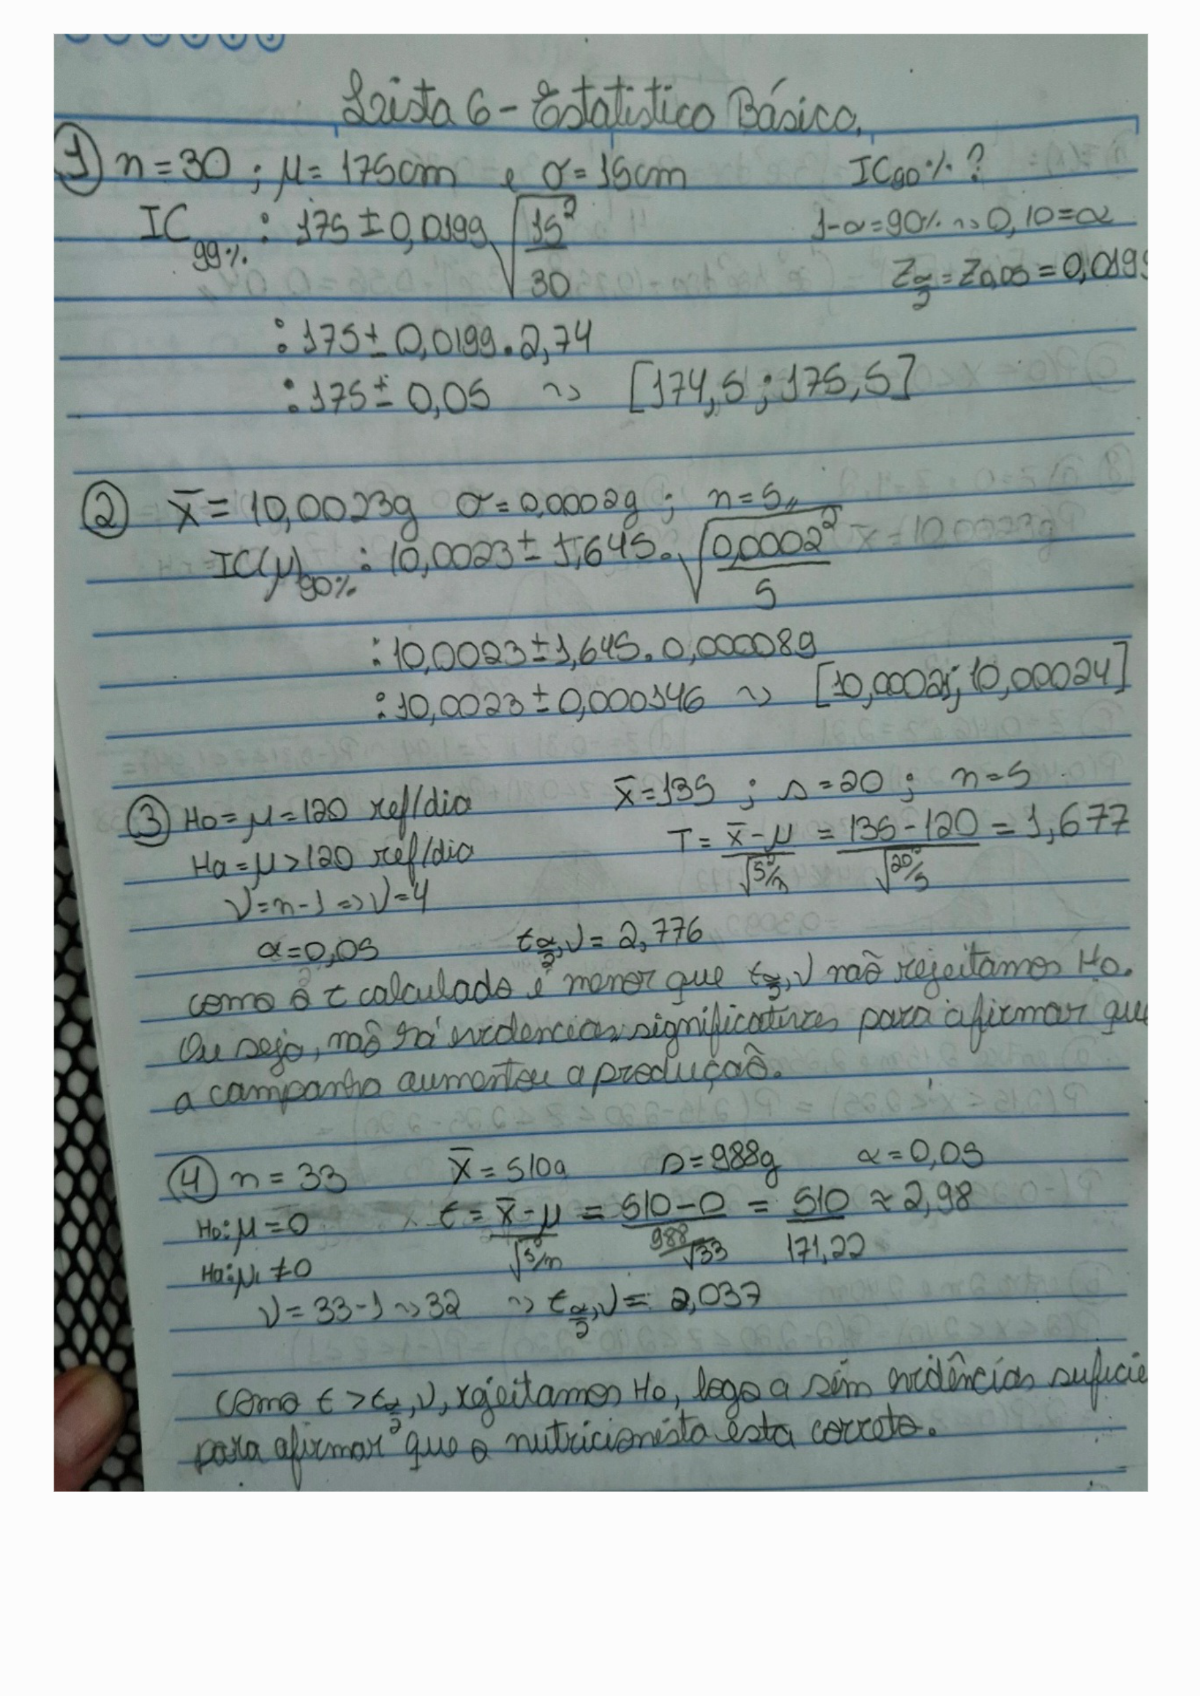 Lista 6 - Estatístico Básico.
1) n = 30 ; μ = 175cm e σ = 15cm IC90% ?
IC99% : 175 ± 0,0199 √(15²/30) 1-α = 90% ~> 0,10 = α
Zα/2 = Z0,05 = 0,0199
: 175 ± 0,0199 . 2,74
: 175 ± 0,05 ~> [174,5 ; 175,5]
2) x̄ = 10,0023g σ = 0,0002g ; n = 5,,
IC(μ)90% : 10,0023 ± 1,645 . √(0,0002²/5)
: 10,0023 ± 1,645 . 0,000089
: 10,0023 ± 0,000146 ~> [10,00021; 10,00024]
3) Ho = μ = 120 ref/dia x̄ = 135 ; s = 20 ; n = 5
Ha = μ > 120 ref/dia T = x̄ - μ / √(s²/n) = 135 - 120 / √(20²/5) = 1,677
ν = n - 1 => ν = 4
α = 0,05 tα/2,ν = 2,776
como o t calculado é menor que tα/2,ν não rejeitamos Ho.
Ou seja, não há evidencias significativas para afirmar que
a campanha aumentou a produção.
4) n = 33 x̄ = 510g s = 988g α = 0,05
Ho: μ = 0 t = x̄ - μ / √(s²/n) = 510 - 0 / 988/√33 = 510 / 171,22 ≈ 2,98
Ha: μ ≠ 0
ν = 33 - 1 ~> 32 ~> tα/2,ν = 2,037
como t > tα/2,ν, rejeitamos Ho, logo a sim evidências suficie
para afirmar que o nutricionista esta correto.